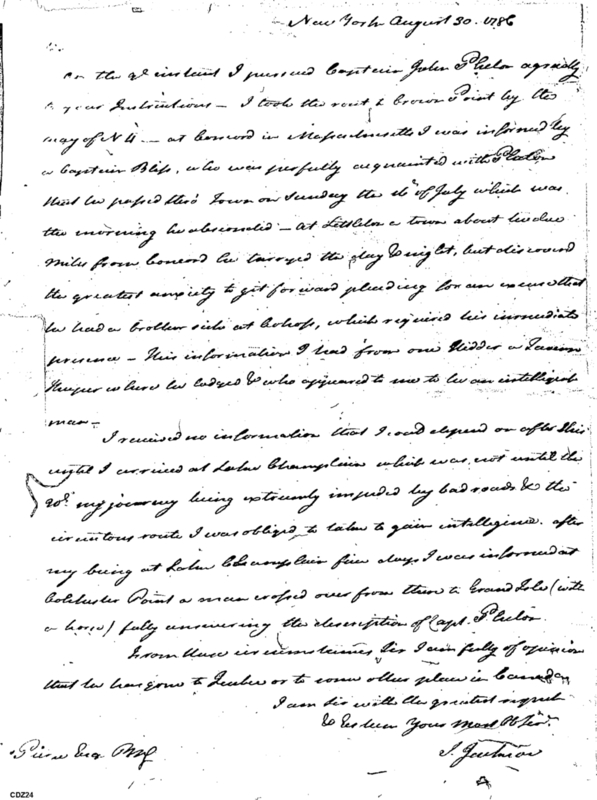 New York August 30. 1786
on the 9th instant I pursued Captain John Phelon agreeably
to your Instructions — I took the rout to Crown Point by the
way of No 4 — at Concord in Massachusetts I was informed by
a Captain Bliss, who was perfectly acquainted with Phelon
that he passed thro' Town on Sunday the 16th of July which was
the morning he absconded — at Littleton a town about twelve
miles from Concord he tarryed the day & night, but discovered
the greatest anxiety to get forward pleading for an excuse that
he had a brother sick at Cohoss, which required his immediate
presence — This information I had from one Kidder a Tavern
Keeper where he lodged & who appeared to me to be an intelligent
man —
I received no information that I could depend on after this
until I arrived at Lake Champlain which was not until the
20th. my journey being extremely impeded by bad roads & the
circuitous route I was obliged to take to gain intelligence. after
my being at Lake Champlain five days I was informed at
Colchester Point a man crossed over from there to Grand Isle (with
a horse) fully answering the description of Capt. Phelon.
From these circumstances Sir I am fully of opinion
that he has gone to Quebec or to some other place in Canada
I am Sir with the greatest respect
& Esteem Your Most Ob Sert.
Pierce Esqr PMG
CDZ24